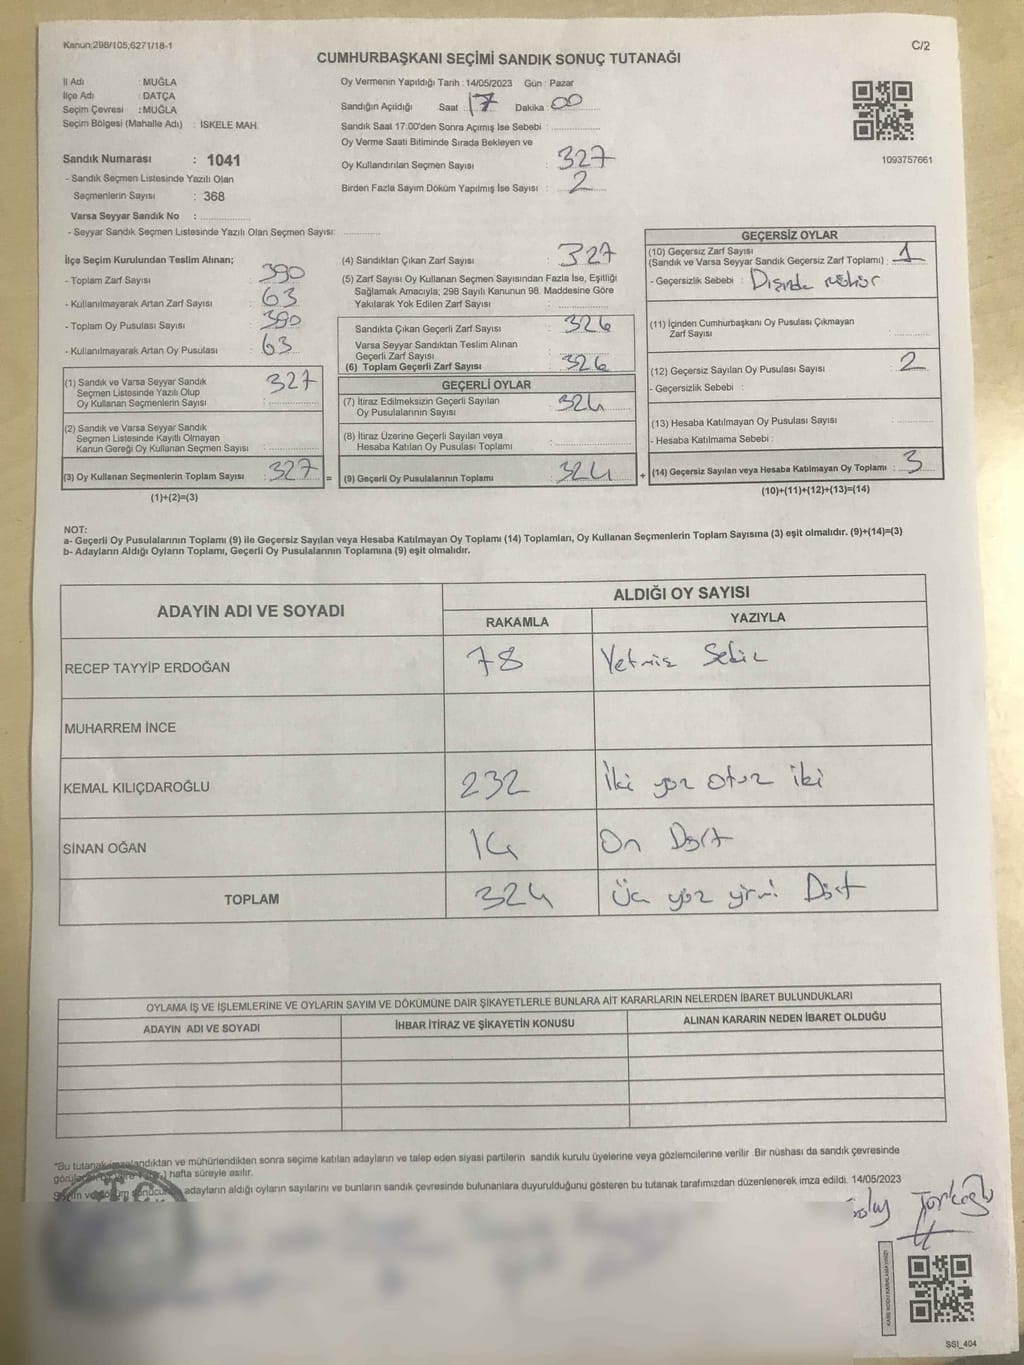 Kanun:298/105,6271/18-1
C/2
CUMHURBAŞKANI SEÇİMİ SANDIK SONUÇ TUTANAĞI
İl Adı : MUĞLA
İlçe Adı : DATÇA
Seçim Çevresi : MUĞLA
Seçim Bölgesi (Mahalle Adı) : İSKELE MAH.
Sandık Numarası : 1041
- Sandık Seçmen Listesinde Yazılı Olan
Seçmenlerin Sayısı : 368
Varsa Seyyar Sandık No :
- Seyyar Sandık Seçmen Listesinde Yazılı Olan Seçmen Sayısı:
Oy Vermenin Yapıldığı Tarih : 14/05/2023 Gün : Pazar
Sandığın Açıldığı Saat : 17 Dakika : 00
Sandık Saat 17:00'den Sonra Açımış İse Sebebi :
Oy Verme Saati Bitiminde Sırada Bekleyen ve
Oy Kullandırılan Seçmen Sayısı : 327
Birden Fazla Sayım Döküm Yapılmış İse Sayısı : 2
1093757661
İlçe Seçim Kurulundan Teslim Alınan;
- Toplam Zarf Sayısı : 390
- Kullanılmayarak Artan Zarf Sayısı : 63
- Toplam Oy Pusulası Sayısı : 390
- Kullanılmayarak Artan Oy Pusulası : 63
(1) Sandık ve Varsa Seyyar Sandık
Seçmen Listesinde Yazılı Olup
Oy Kullanan Seçmenlerin Sayısı : 327
(2) Sandık ve Varsa Seyyar Sandık
Seçmen Listesinde Kayıtlı Olmayan
Kanun Gereği Oy Kullanan Seçmen Sayısı :
(3) Oy Kullanan Seçmenlerin Toplam Sayısı : 327
(1)+(2)=(3)
=
(4) Sandıktan Çıkan Zarf Sayısı : 327
(5) Zarf Sayısı Oy Kullanan Seçmen Sayısından Fazla İse, Eşitliği
Sağlamak Amacıyla; 298 Sayılı Kanunun 98. Maddesine Göre
Yakılarak Yok Edilen Zarf Sayısı :
Sandıkta Çıkan Geçerli Zarf Sayısı : 326
Varsa Seyyar Sandıktan Teslim Alınan
Geçerli Zarf Sayısı :
(6) Toplam Geçerli Zarf Sayısı : 326
GEÇERLİ OYLAR
(7) İtiraz Edilmeksizin Geçerli Sayılan
Oy Pusulalarının Sayısı : 324
(8) İtiraz Üzerine Geçerli Sayılan veya
Hesaba Katılan Oy Pusulası Toplamı :
(9) Geçerli Oy Pusulalarının Toplamı : 324
+
GEÇERSİZ OYLAR
(10) Geçersiz Zarf Sayısı
(Sandık ve Varsa Seyyar Sandık Geçersiz Zarf Toplamı) : 1
- Geçersizlik Sebebi : Dışında mühür
(11) İçinden Cumhurbaşkanı Oy Pusulası Çıkmayan
Zarf Sayısı :
(12) Geçersiz Sayılan Oy Pusulası Sayısı : 2
- Geçersizlik Sebebi :
(13) Hesaba Katılmayan Oy Pusulası Sayısı :
- Hesaba Katılmama Sebebi :
(14) Geçersiz Sayılan veya Hesaba Katılmayan Oy Toplamı : 3
(10)+(11)+(12)+(13)=(14)
NOT:
a- Geçerli Oy Pusulalarının Toplamı (9) ile Geçersiz Sayılan veya Hesaba Katılmayan Oy Toplamı (14) Toplamları, Oy Kullanan Seçmenlerin Toplam Sayısına (3) eşit olmalıdır. (9)+(14)=(3)
b- Adayların Aldığı Oyların Toplamı, Geçerli Oy Pusulalarının Toplamına (9) eşit olmalıdır.
ADAYIN ADI VE SOYADI
ALDIĞI OY SAYISI
RAKAMLA YAZIYLA
RECEP TAYYİP ERDOĞAN 78 Yetmiş Sekiz
MUHARREM İNCE
KEMAL KILIÇDAROĞLU 232 İki yüz otuz iki
SİNAN OĞAN 14 On Dört
TOPLAM 324 Üç yüz yirmi Dört
OYLAMA İŞ VE İŞLEMLERİNE VE OYLARIN SAYIM VE DÖKÜMÜNE DAİR ŞİKAYETLERLE BUNLARA AİT KARARLARIN NELERDEN İBARET BULUNDUKLARI
ADAYIN ADI VE SOYADI İHBAR İTİRAZ VE ŞİKAYETİN KONUSU ALINAN KARARIN NEDEN İBARET OLDUĞU
*Bu tutanak imzalandıktan ve mühürlendikten sonra seçime katılan adayların ve talep eden siyasi partilerin sandık kurulu üyelerine veya gözlemcilerine verilir. Bir nüshası da sandık çevresinde
hafta süreyle asılır.
adayların aldığı oyların sayılarını ve bunların sandık çevresinde bulunanlara duyurulduğunu gösteren bu tutanak tarafımızdan düzenlenerek imza edildi. 14/05/2023
SSI_404